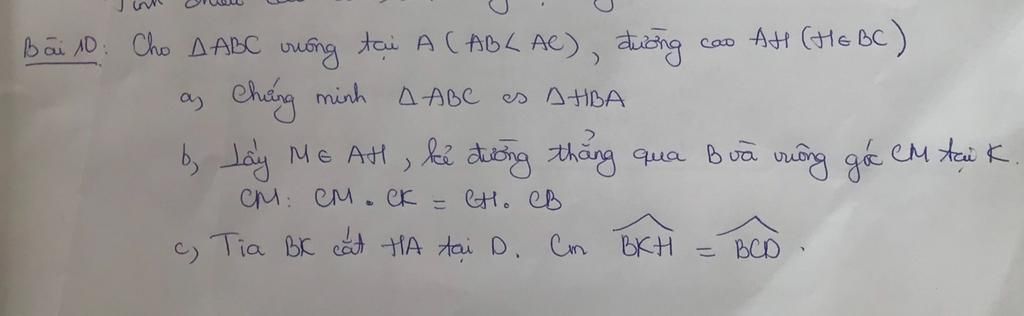 Bài 10: Cho ΔABC vuông tại A (AB < AC), đường cao AH (H ∈ BC)
a, Chứng minh ΔABC ∽ ΔHBA
b, Lấy M ∈ AH, kẻ đường thẳng qua B và vuông góc CM tại K.
CM: CM . CK = CH . CB
c, Tia BK cắt HA tại D. Cm \widehat{BKH} = \widehat{BCD}.